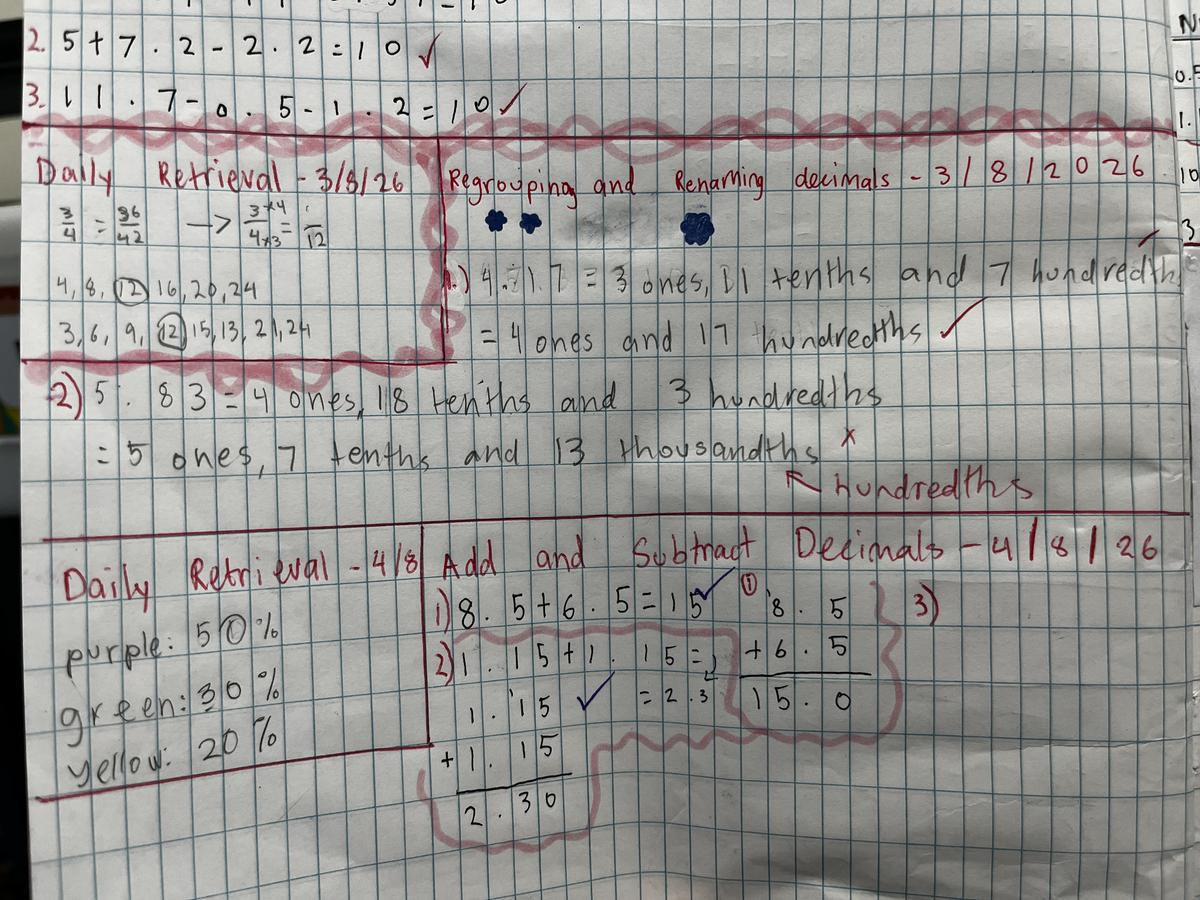 2. 5+7.2-2.2=10 ✓
3. 11.7-0.5-1.2=10 ✓
Daily Retrieval - 3/8/26
3/4 = 36/42 -> 3×4/4×3 = /12
4, 8, 12, 16, 20, 24
3, 6, 9, 12, 15, 13, 21, 24
Regrouping and Renaming decimals - 3/8/2026
1.) 4.17 = 3 ones, 11 tenths and 7 hundredth
= 4 ones and 17 hundredths ✓
2) 5.83 = 4 ones, 18 tenths and 3 hundredths
= 5 ones, 7 tenths and 13 thousandths x
hundredths
Daily Retrieval - 4/8
purple: 50%
green: 30%
yellow: 20%
Add and Subtract Decimals - 4/8/26
1) 8.5+6.5=15 ✓
2) 1.15+1.15=
= 2.3
1.15 ✓
+1.15
2.30
1
8.5
+6.5
15.0
3)
N
0.5
1.
10
3